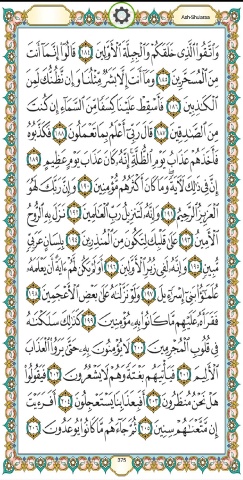 Ash-Shuaraa
وَاتَّقُوا الَّذِي خَلَقَكُمْ وَالْجِبِلَّةَ الْأَوَّلِينَ ١٨٤ قَالُوا إِنَّمَا أَنتَ
مِنَ الْمُسَحَّرِينَ ١٨٥ وَمَا أَنتَ إِلَّا بَشَرٌ مِّثْلُنَا وَإِن نَّظُنُّكَ لَمِنَ
الْكَاذِبِينَ ١٨٦ فَأَسْقِطْ عَلَيْنَا كِسَفًا مِّنَ السَّمَاءِ إِن كُنتَ
مِنَ الصَّادِقِينَ ١٨٧ قَالَ رَبِّي أَعْلَمُ بِمَا تَعْمَلُونَ ١٨٨ فَكَذَّبُوهُ
فَأَخَذَهُمْ عَذَابُ يَوْمِ الظُّلَّةِ إِنَّهُ كَانَ عَذَابَ يَوْمٍ عَظِيمٍ ١٨٩
إِنَّ فِي ذَٰلِكَ لَآيَةً وَمَا كَانَ أَكْثَرُهُم مُّؤْمِنِينَ ١٩٠ وَإِنَّ رَبَّكَ لَهُوَ
الْعَزِيزُ الرَّحِيمُ ١٩١ وَإِنَّهُ لَتَنزِيلُ رَبِّ الْعَالَمِينَ ١٩٢ نَزَلَ بِهِ الرُّوحُ
الْأَمِينُ ١٩٣ عَلَىٰ قَلْبِكَ لِتَكُونَ مِنَ الْمُنذِرِينَ ١٩٤ بِلِسَانٍ عَرَبِيٍّ
مُّبِينٍ ١٩٥ وَإِنَّهُ لَفِي زُبُرِ الْأَوَّلِينَ ١٩٦ أَوَلَمْ يَكُن لَّهُمْ آيَةً أَن يَعْلَمَهُ
عُلَمَاءُ بَنِي إِسْرَائِيلَ ١٩٧ وَلَوْ نَزَّلْنَاهُ عَلَىٰ بَعْضِ الْأَعْجَمِينَ ١٩٨
فَقَرَأَهُ عَلَيْهِم مَّا كَانُوا بِهِ مُؤْمِنِينَ ١٩٩ كَذَٰلِكَ سَلَكْنَاهُ
فِي قُلُوبِ الْمُجْرِمِينَ ٢٠٠ لَا يُؤْمِنُونَ بِهِ حَتَّىٰ يَرَوُا الْعَذَابَ
الْأَلِيمَ ٢٠١ فَيَأْتِيَهُم بَغْتَةً وَهُمْ لَا يَشْعُرُونَ ٢٠٢ فَيَقُولُوا
هَلْ نَحْنُ مُنظَرُونَ ٢٠٣ أَفَبِعَذَابِنَا يَسْتَعْجِلُونَ ٢٠٤ أَفَرَأَيْتَ
إِن مَّتَّعْنَاهُمْ سِنِينَ ٢٠٥ ثُمَّ جَاءَهُم مَّا كَانُوا يُوعَدُونَ ٢٠٦
375